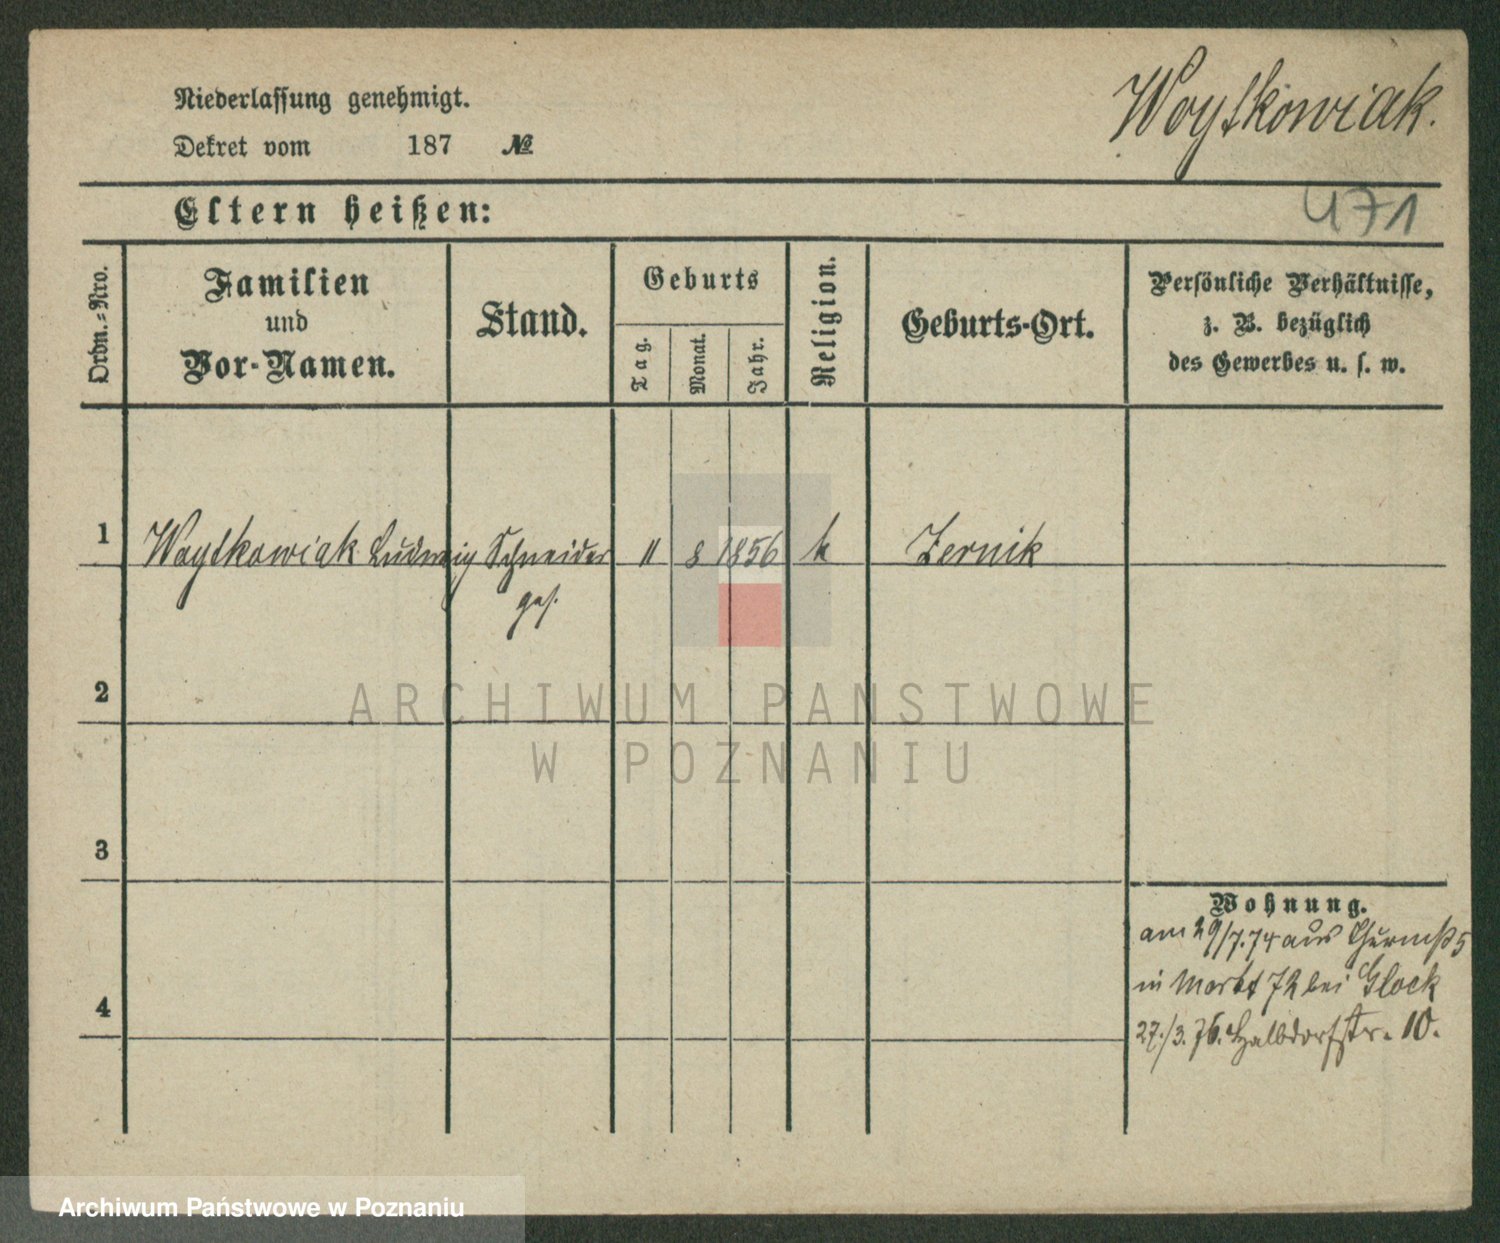 Niederlassung genehmigt.
Woytkowiak.
Dekret vom 187 №
Eltern heißen:
471
Ordn.-Nro.
Familien
und
Vor-Namen.
Stand.
Geburts
Tag.
Monat.
Jahr.
Religion.
Geburts-Ort.
Persönliche Verhältnisse,
z. B. bezüglich
des Gewerbes u. s. w.
1 Woytkowiak Ludwig Schneider 11 8 1856 k Zernik
ges.
2
3
4
Wohnung.
am 29/7.74 aus
in Markt 72 bei Glock
27./3. 76. Halbdorfstr. 10.
ARCHIWUM PAŃSTWOWE
W POZNANIU
Archiwum Państwowe w Poznaniu